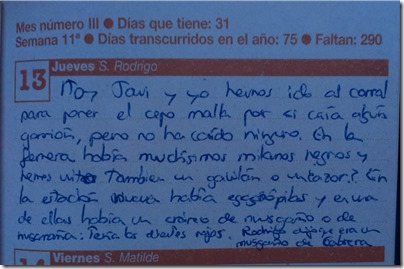 Mes número III ● Días que tiene: 31
Semana 11ª ● Días transcurridos en el año: 75 ● Faltan: 290
13 Jueves S. Rodrigo
Hoy Javi y yo hemos ido al corral
para poner el cepo malla por si caía algún
gorrión, pero no ha caído ninguno. En la
había muchísimos milanos negros y
hemos visto También un gavilán o un azor.? En
la estación nueva había egagrópilas y en una
de ellas había un cráneo de musgaño o de
musaraña: Tenía los dientes rojos. Rodrigo dijo que era un
musgaño de Cabrera
14 Viernes S. Matilde